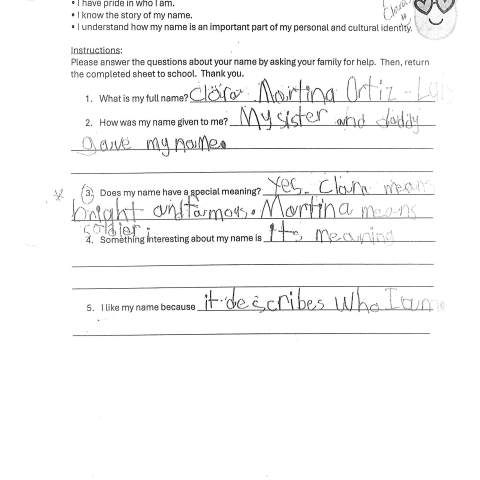 • I have pride in who I am.
• I know the story of my name.
• I understand how my name is an important part of my personal and cultural identity.
Clara
Instructions:
Please answer the questions about your name by asking your family for help. Then, return
the completed sheet to school. Thank you.
1. What is my full name? Clara Martina Ortiz -
2. How was my name given to me? My sister and daddy
gave my name.
3. Does my name have a special meaning? Yes. Clara means
bright and famous. Martina means
soldier.
4. Something interesting about my name is Its meaning
5. I like my name because it describes who I am